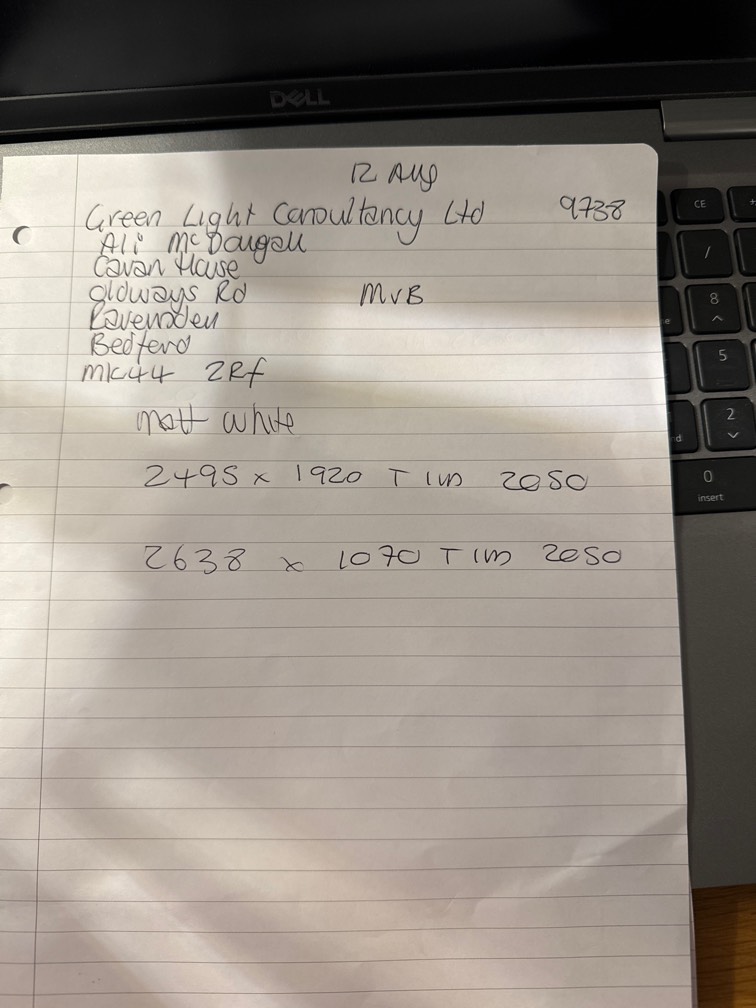 DELL
12 Aug
Green Light Consultancy Ltd 9738
Ali McDougall
Cavan House
Oldways Rd MVB
Ravensden
Bedford
MK44 2Rf
matt white
2495 x 1920 T 1IN 2050
2638 x 1070 T 1IN 2050
CE
/
8
5
2
0
insert